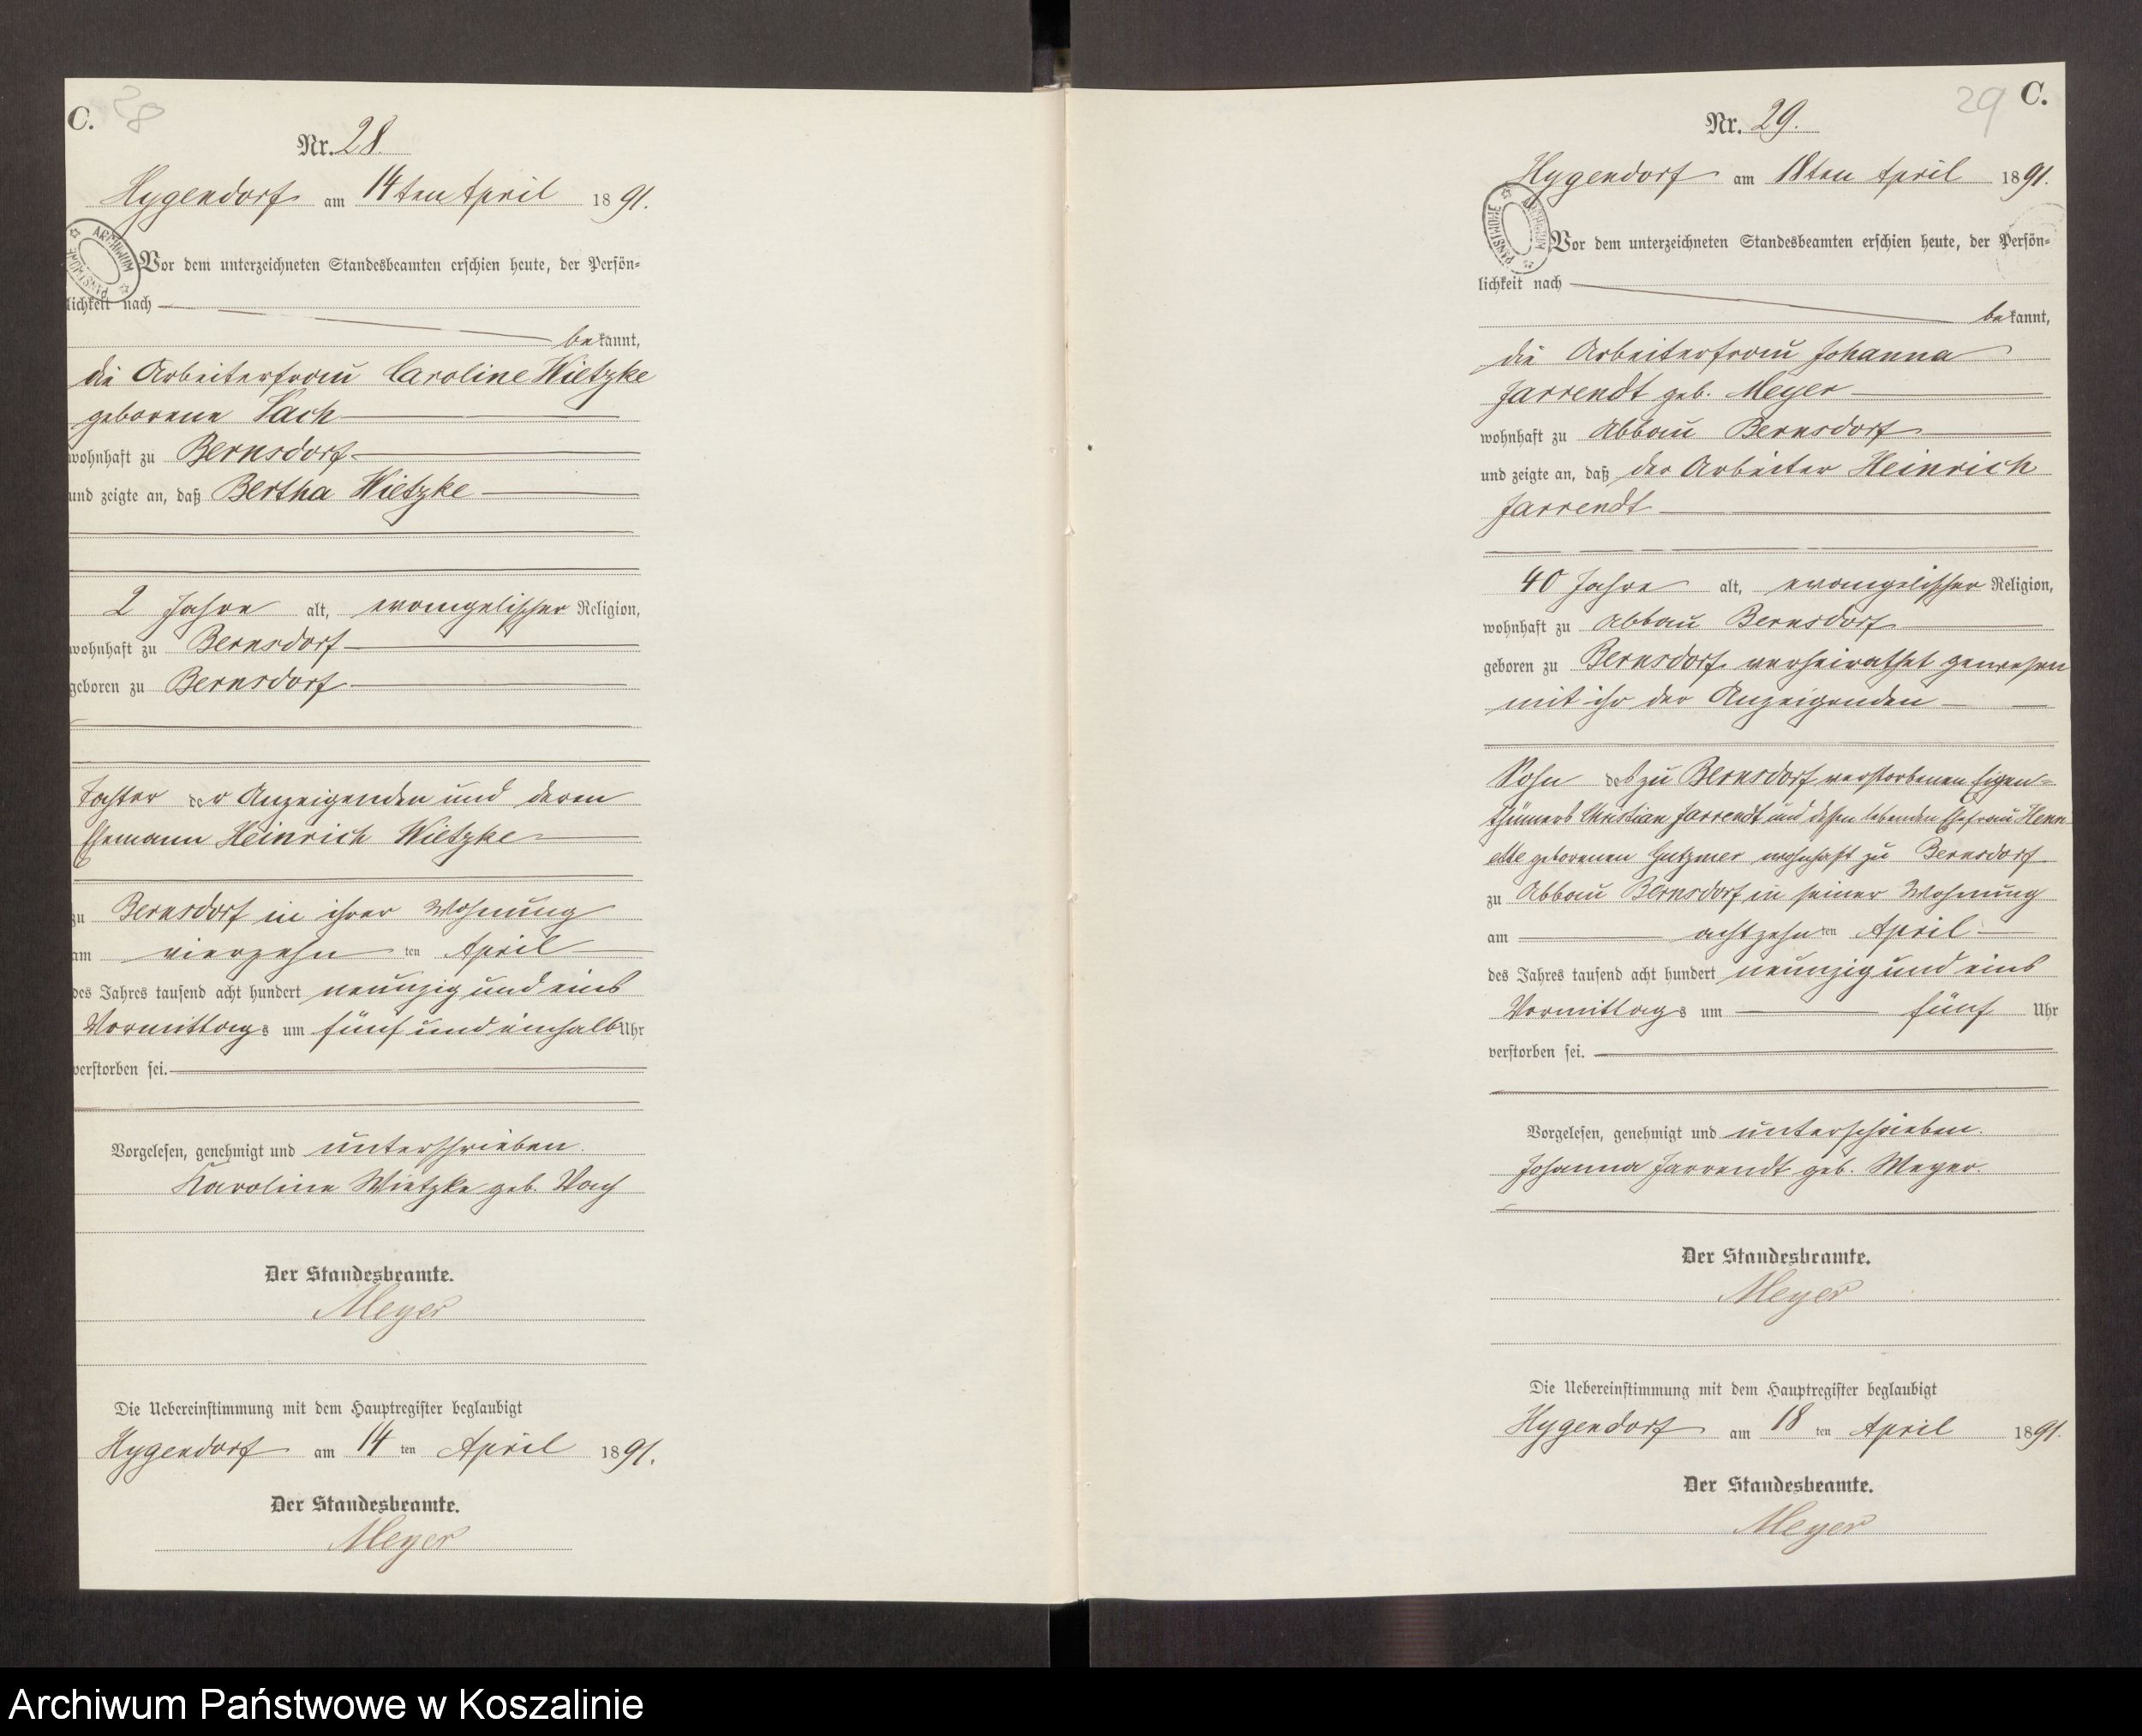 C. 28
Nr. 28.
Hygendorf am 14ten April 1891.
ARCHIWUM PAŃSTWOWE
Vor dem unterzeichneten Standesbeamten erschien heute, der Persön-
lichkeit nach
bekannt,
die Arbeiterfrau Caroline Wietzke
geborene Vach
wohnhaft zu Bernsdorf
und zeigte an, daß Bertha Wietzke
2 Jahre alt, evangelischer Religion,
wohnhaft zu Bernsdorf
geboren zu Bernsdorf
Tochter der Anzeigenden und deren
Ehemann Heinrich Wietzke
zu Bernsdorf in ihrer Wohnung
am vierzehn ten April
des Jahres tausend acht hundert neunzig und eins
Vormittags um fünf und einhalb Uhr
verstorben sei.
Vorgelesen, genehmigt und unterschrieben.
Karoline Wietzke geb. Vach
Der Standesbeamte.
Meyer
Die Uebereinstimmung mit dem Hauptregister beglaubigt
Hygendorf am 14 ten April 1891.
Der Standesbeamte.
Meyer
29 C.
Nr. 29.
Hygendorf am 18ten April 1891.
ARCHIWUM PAŃSTWOWE
Vor dem unterzeichneten Standesbeamten erschien heute, der Persön-
lichkeit nach
bekannt,
die Arbeiterfrau Johanna
Jarrendt geb. Meyer
wohnhaft zu Abbau Bernsdorf
und zeigte an, daß der Arbeiter Heinrich
Jarrendt
40 Jahre alt, evangelischer Religion,
wohnhaft zu Abbau Bernsdorf
geboren zu Bernsdorf, verheirathet gewesen
mit ihr der Anzeigenden
Sohn des zu Bernsdorf verstorbenen Eigen-
thümers Christian Jarrendt und dessen lebenden Ehefrau Henri
ette geborenen Gutzmer wohnhaft zu Bernsdorf
zu Abbau Bernsdorf in seiner Wohnung
am achtzehn ten April
des Jahres tausend acht hundert neunzig und eins
Vormittags um fünf Uhr
verstorben sei.
Vorgelesen, genehmigt und unterschrieben.
Johanna Jarrendt geb. Meyer.
Der Standesbeamte.
Meyer
Die Uebereinstimmung mit dem Hauptregister beglaubigt
Hygendorf am 18 ten April 1891.
Der Standesbeamte.
Meyer
Archiwum Państwowe w Koszalinie